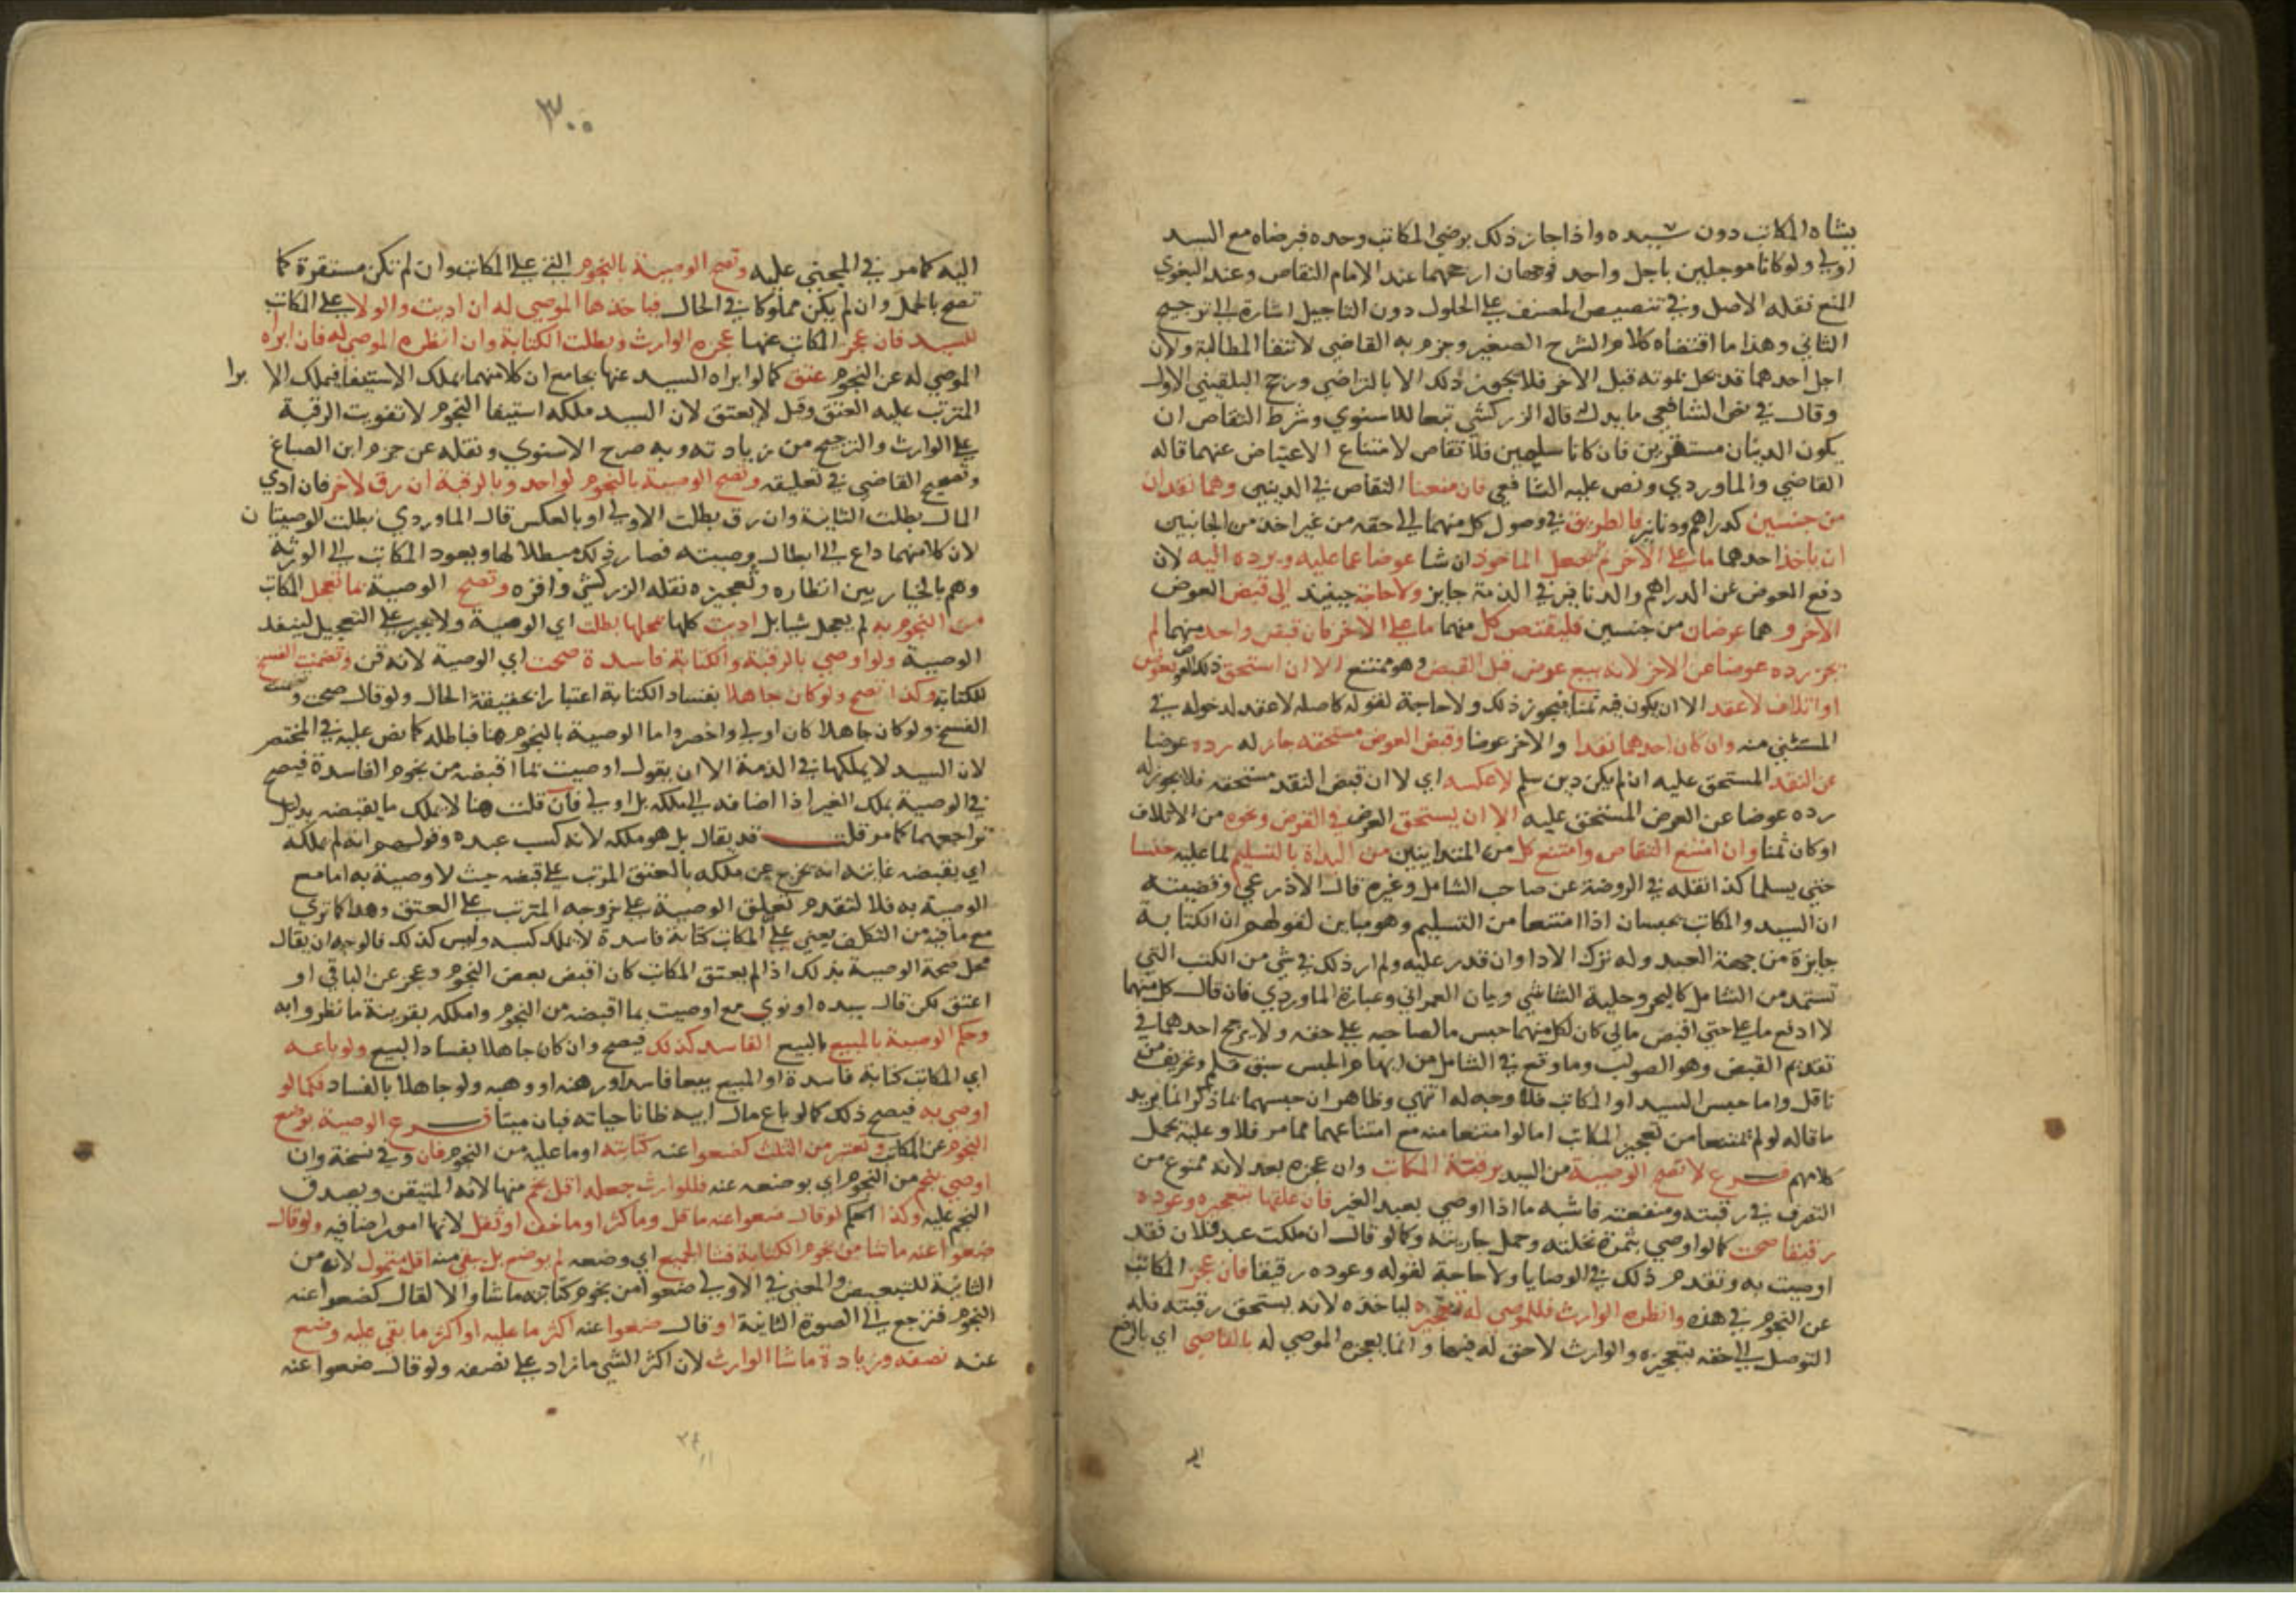 يشاه المكاتب دون سيده واذا جاز ذلك برضي المكاتب وحده فبرضاه مع السيد
اولي ولو كانا موجلين باجل واحد فوجهان ارجحهما عند الامام التقاص وعند البغوي
المنع نقله الاصل وفي تنصيص المصنف علي الحلول دون التاجيل اشارة الي ترجيح
الثاني وهذا ما اقتضاه كلام الشرح الصغير وجزم به القاضي لانتفا المطالبة ولان
اجل احدهما قد يحل بموته قبل الاخر فلا يجوز ذلك الا بالتراضي ورجح البلقيني الاول
وقال في نص الشافعي ما يدل له قال الزركشي تبعا للاسنوي وشرط التقاص ان
يكون الدينان مستقرين فان كانا سلمين فلا تقاص لامتناع الاعتياض عنهما قاله
القاضي والماوردي ونص عليه الشافعي فان منعنا التقاص في الدينين وهما نقدان
من جنسين كدراهم ودنانير فالطريق في وصول كل منهما الي حقه من غير اخذ من الجانبين
ان ياخذ احدهما ما علي الاخر ثم يجعل الماخوذ ان شا عوضا عما عليه ويرده اليه لان
دفع العوض عن الدراهم والدنانير في الذمة جايز ولا حاجة حينيذ الي قبض العوض
الاخر وهما عرضان من جنسين فليقبض كل منهما ما علي الاخر فان قبض واحد منهما لم
يجز رده عوضا عن الاخر لانه بيع عرض قبل القبض وهو ممتنع الا ان استحق ذلك العرض بقرض
او اتلاف لا عقد الا ان يكون فيه ثمنا فيجوز ذلك ولا حاجة لقوله كاصله لا عقد لدخوله في
المستثني منه وان كان احدهما نقدا والاخر عرضا وقبض العرض مستحقه جاز له رده عوضا
عن النقد المستحق عليه ان لم يكن دين سلم لا عكسه اي لا ان قبض النقد مستحقه فلا يجوز له
رده عوضا عن العرض المستحق عليه الا ان يستحق العرض في القرض ونحوه من الاتلاف
او كان ثمنا وان امتنع التقاص وامتنع كل من المتداينين من البداة بالتسليم لما عليه حبسا
حتي يسلما كذا نقله في الروضة عن صاحب الشامل وغيره قال الاذرعي وقضيته
ان السيد والمكاتب يحبسان اذا امتنعا من التسليم وهو مباين لقولهم ان الكتابة
جايزة من جهة العبد وله ترك الادا وان قدر عليه ولم ار ذلك في شي من الكتب التي
تستمد من الشامل كالبحر وحلية الشاشي وبيان العمراني وعبارة الماوردي فان قال كل منهما
لا ادفع ما علي حتي اقبض مالي كان لكل منهما حبس ما لصاحبه علي حقه ولا يرجح احدهما في
تقديم القبض وهو الصواب وما وقع في الشامل من ابهام الحبس سبق قلم وتحريف من
ناقل واما حبس السيد او المكاتب فلا وجه له انتهي وظاهر ان حبسهما بما ذكر انما يريد
ما قاله لو لم يمتنعا من تعجيز المكاتب اما لو امتنعا منه مع امتناعهما مما مر فلا وعليه يحمل
كلامهم فرع لا تصح الوصية من السيد برقبة المكاتب وان عجزه بعد لانه ممنوع من
التصرف في رقبته ومنفعته فاشبه ما اذا اوصي بعبد الغير فان علقها بتعجيزه وعوده
رقيقا صحت كما لو اوصي بثمرة نخلته وحمل جاريته وكما لو قال ان ملكت عبد فلان فقد
اوصيت به وتقدم ذلك في الوصايا ولا حاجة لقوله وعوده رقيقا فان عجز المكاتب
عن النجوم في هذه وانظره الوارث فللموصي له تعجيزه لياخذه لانه يستحق رقبته فله
التوصل الي حقه بتعجيزه والوارث لا حق له فيها وانما يعجزه الموصي له بالقاضي اي بالرفع
اليه
٣٠٠
اليه كما مر في المجني عليه وتصح الوصية بالنجوم التي علي المكاتب وان لم تكن مستقرة كما
تصح بالحمل وان لم يكن مملوكا في الحال فياخذها الموصي له ان اديت والولا علي المكاتب
للسيد فان عجز المكاتب عنها عجزه الوارث وبطلت الكتابة وان انظره الموصي له فان ابراه
الموصي له عن النجوم عتق كما لو ابراه السيد عنها بجامع ان كلا منهما يملك الاستيفا فيملك الا برا
المترتب عليه العتق وقيل لا يعتق لان السيد ملكه استيفا النجوم لا تفويت الرقبة
علي الوارث والترجيح من زيادته وبه صرح الاسنوي ونقله عن جزم ابن الصباغ
وتصحيح القاضي في تعليقه وتصح الوصية بالنجوم لواحد وبالرقبة ان رق لاخر فان ادي
المال بطلت الثانية وان رق بطلت الاولي او بالعكس قال الماوردي بطلت الوصيتان
لان كلا منهما داع الي ابطال وصيته فصار ذلك مبطلا لها ويعود المكاتب الي الورثة
وهم بالخيار بين انظاره وتعجيزه نقله الزركشي واقره وتصح الوصية بما تعجل المكاتب
من النجوم به لم يعجل شيا بل اديت كلها بمحلها بطلت اي الوصية ولا يجبر علي التعجيل لينفذ
الوصية ولو اوصي بالرقبة والكتابة فاسدة صحت اي الوصية لانه قن وتضمنت الفسخ
للكتابة وكذا تصح ولو كان جاهلا بفساد الكتابة اعتبارا بحقيقة الحال ولو قال صحت وتضمنت
الفسخ ولو كان جاهلا كان اولي واخصر واما الوصية بالنجوم هنا فباطله كما نص عليه في المختصر
لان السيد لا يملكها في الذمة الا ان يقول اوصيت بما اقبضه من نجوم الفاسدة فيصح
في الوصية بملك الغير اذا اضافه الي ملكه بل اولي فان قلت هنا لا يملك ما يقبضه بدليل
تراجعهما كما مر قلت قد يقال بل هو ملكه لانه كسب عبده وقولهم انه لم يملكه
اي بقبضه غايته انه يخرج عن ملكه بالعتق المرتب علي قبضه حيث لا وصية به اما مع
الوصية به فلا لتقدم تعلق الوصية علي خروجه المترتب علي العتق وهذا كما تري
مع ما فيه من التكلف يعني علي المكاتب كتابة فاسدة لا يملك كسبه وليس كذلك فالوجه ان يقال
محل صحة الوصية بذلك اذا لم يعتق المكاتب كان اقبض بعض النجوم وعجز عن الباقي او
اعتق لكن قال سيده او نوي مع اوصيت بما اقبضه من النجوم واملكه بقرينة ما نظروا به
وحكم الوصية بالمبيع بالبيع الفاسد كذلك فيصح وان كان جاهلا بفساد البيع ولو باعه
اي المكاتب كتابة فاسدة او المبيع بيعا فاسدا ورهنه او وهبه ولو جاهلا بالفساد فكما لو
اوصي به فيصح ذلك كما لو باع مال ابيه ظانا حياته فبان ميتا فرع الوصية بوضع
النجوم عن المكاتب وتعتبر من الثلث كضعوا عنه كتابته او ما عليه من النجوم فان وفي نسخة وان
اوصي بنجم من النجوم اي بوضعه عنه فللوارث جعله اقل نجم منها لانه المتيقن ويصدق
النجم عليه وكذا الحكم لو قال ضعوا عنه ما قل وما كثر او ما خف او ثقل لانها امور اضافيه ولو قال
ضعوا عنه ما شا من نجوم الكتابة فشا الجميع اي وضعه لم يوضع بل يبقي منه اقل متمول لان من
الثانية للتبعيض والمعني في الاولي ضعوا من نجوم كتابته ما شا والا لقال كضعوا عنه
النجوم فترجع الي الصورة الثانية او قال ضعوا عنه اكثر ما عليه او اكثر ما بقي عليه وضع
عنه نصفه وزيادة ما شا الوارث لان اكثر الشي ما زاد علي نصفه ولو قال ضعوا عنه